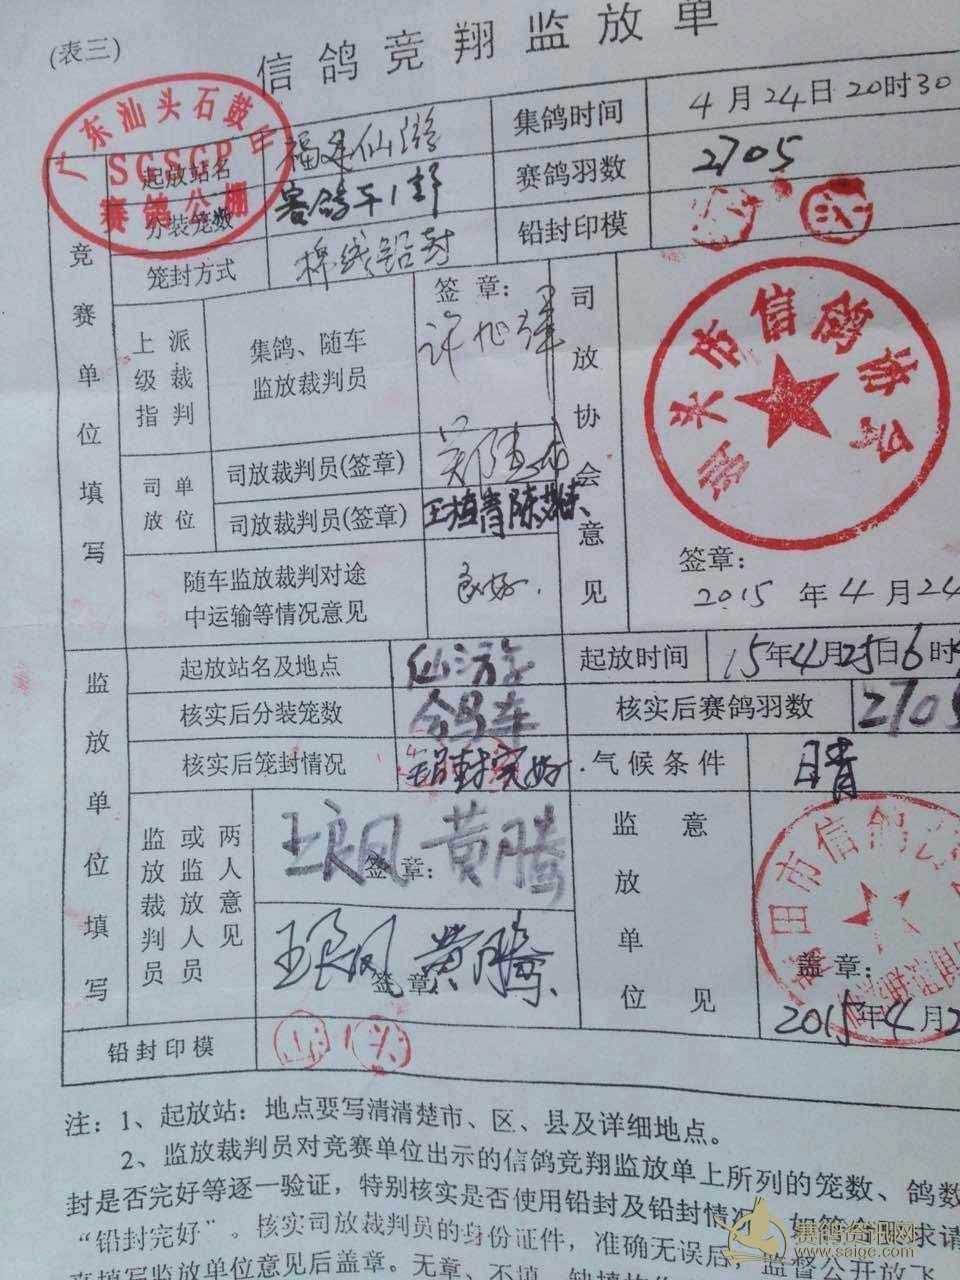 (表三)
信鸽竞翔监放单
广东汕头石鼓山
SGSGP
赛鸽公棚
竞赛单位填写
起放站名
福建仙游
集鸽时间
4月24日20时30
分装笼数
赛鸽车1部
赛鸽羽数
2705
笼封方式
棉线铅封
铅封印模
上级指派裁判
集鸽、随车
监放裁判员
签章:
司放单位
司放裁判员(签章)
司放裁判员(签章)
随车监放裁判对途
中运输等情况意见
良好.
司放协会意见
汕头市信鸽协会
签章:
2015年4月24
监放单位填写
起放站名及地点
仙游
起放时间
15年4月25日6时
核实后分装笼数
鸽车
核实后赛鸽羽数
2705
核实后笼封情况
铅封完好.
气候条件
晴
监放裁判员
或监放人员
两人意见
王良凤 黄腾
签章:
王良凤 黄腾
签章:
监放单位
意见
莆田市信鸽协
盖章:
2015年4月2
铅封印模
注:1、起放站:地点要写清清楚市、区、县及详细地点。
2、监放裁判员对竞赛单位出示的信鸽竞翔监放单上所列的笼数、鸽数
封是否完好等逐一验证,特别核实是否使用铅封及铅封情况
“铅封完好”。核实司放裁判员的身份证件,准确无误后,监督公开放飞
来填写监放单位意见后盖章。无章、不填、缺填
赛鸽资讯网
www.saige.com